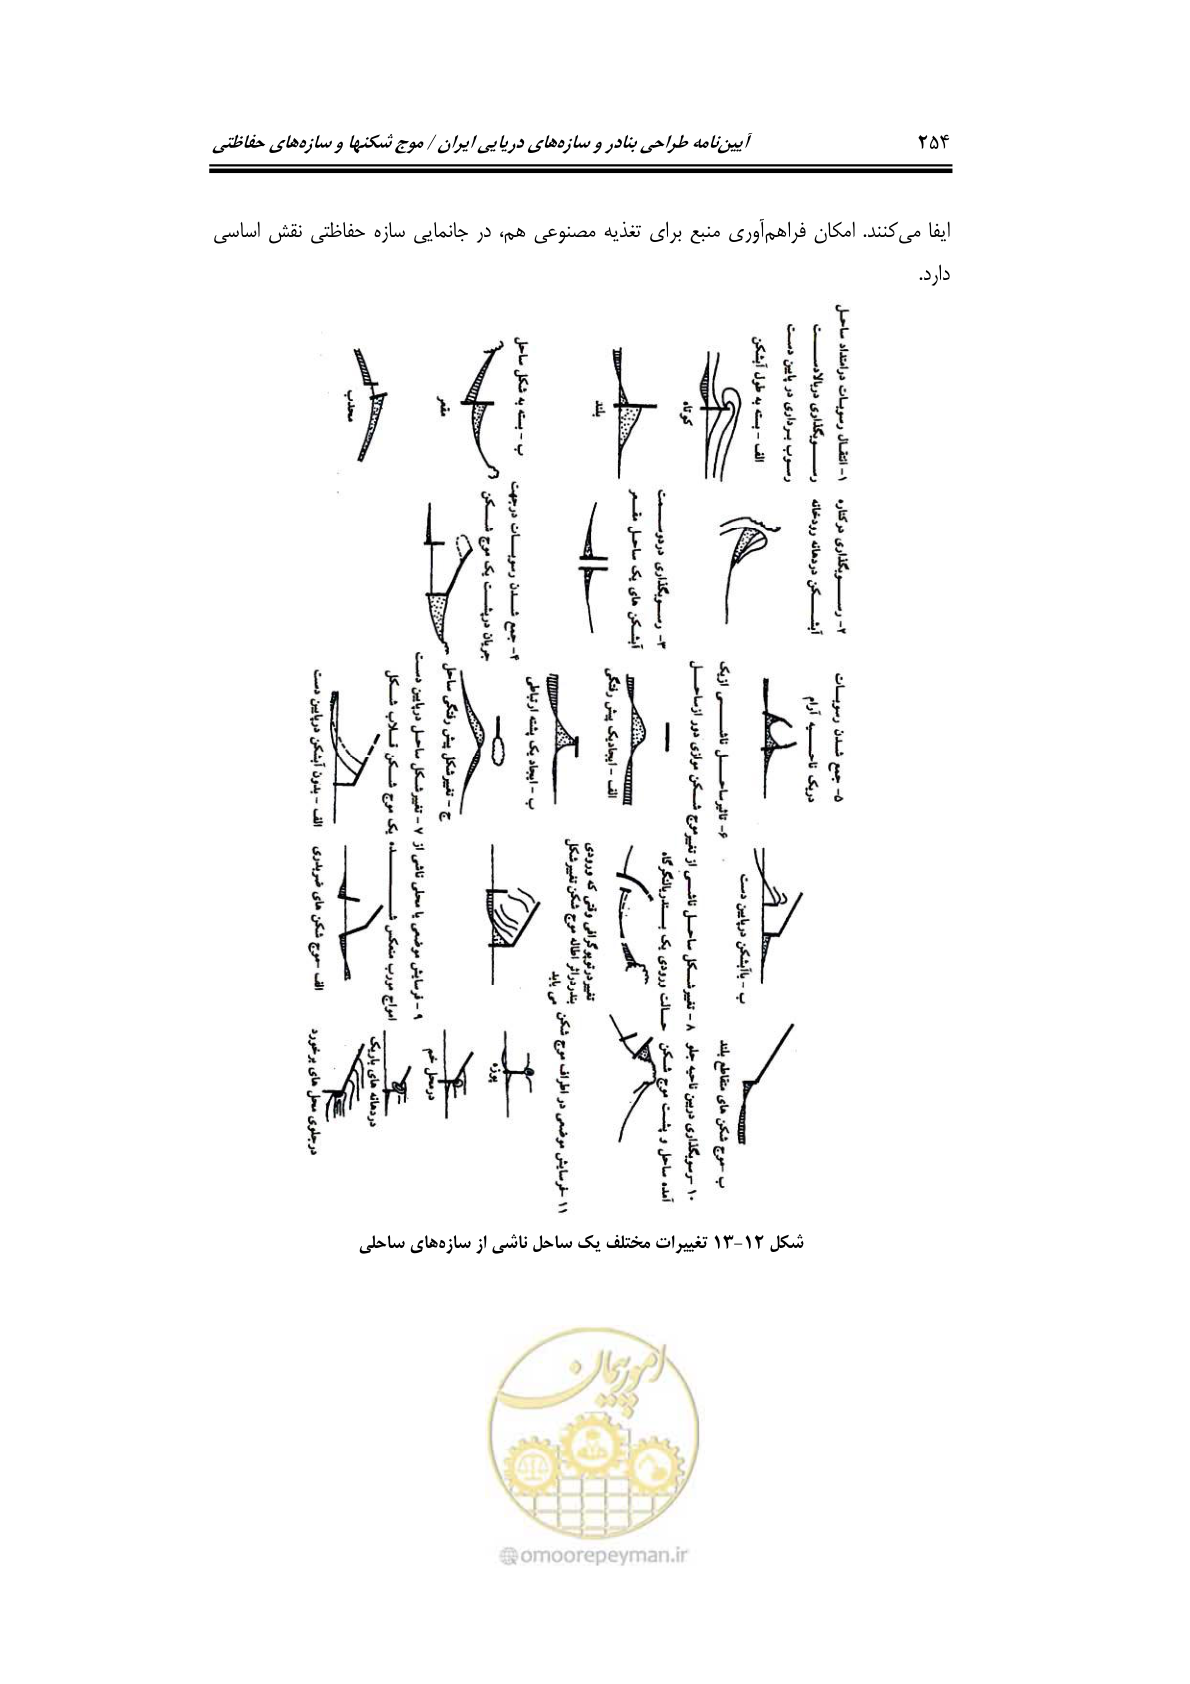 ۲۵۴
آیین‌نامه طراحی بنادر و سازه‌های دریایی ایران / موج شکنها و سازه‌های حفاظتی
ایفا می‌کنند. امکان فراهم‌آوری منبع برای تغذیه مصنوعی هم، در جانمایی سازه حفاظتی نقش اساسی
دارد.
۱- انتقال رسوبات درامتداد ساحل
رسوبگذاری دربالادست
رسوب برداری در پایین دست
الف - بسته به طول آبشکن
کوتاه
بلند
ب - بسته به شکل ساحل
مقعر
محدب
۲- رسوبگذاری درکناره
آبشکن دردهانه رودخانه
۳- رسوبگذاری دردوسمت
آبشکن های یک ساحل مقعر
۴- جمع شدن رسوبات درجهت
جریان درپشت یک موج شکن
۵- جمع شدن رسوبات
دریک ناحیه آرام
۶- تاثیرساحل ناشی ازیک
موج شکن موازی دور ازساحل
الف - ایجادیک پیش رفتگی
ب - ایجاد یک پشته ارتباطی
ج - تغییرشکل پیش رفتگی ساحل
۷ - تغییرشکل ساحل درپایین دست
یک موج شکن قلاب شکل
الف - بدون آبشکن درپایین دست
ب - باآبشکن درپایین دست
۸ - تغییرشکل ساحل ناشی از تغییر
حالت ورودی یک بندریالنگرگاه
تغییردرتوپوگرافی وقتی که ورودی
بندردراثر اطاله موج شکن تغییرشکل
می یابد
۹ - فرسایش موضعی یا محلی ناشی از
امواج مورب منعکس شده
الف -موج شکن های ضربدری
ب -موج شکن های متقاطع بلند
۱۰ -رسوبگذاری دربین ناحیه جلو
آمده ساحل و پشت موج شکن
۱۱ -فرسایش موضعی در اطراف موج شکن
پوزه
درمحل خم
دردهانه های باریک
درجلوی محل های برخورد
شکل ۱۲-۱۳ تغییرات مختلف یک ساحل ناشی از سازه‌های ساحلی
امور پیمان
@omoorepeyman.ir